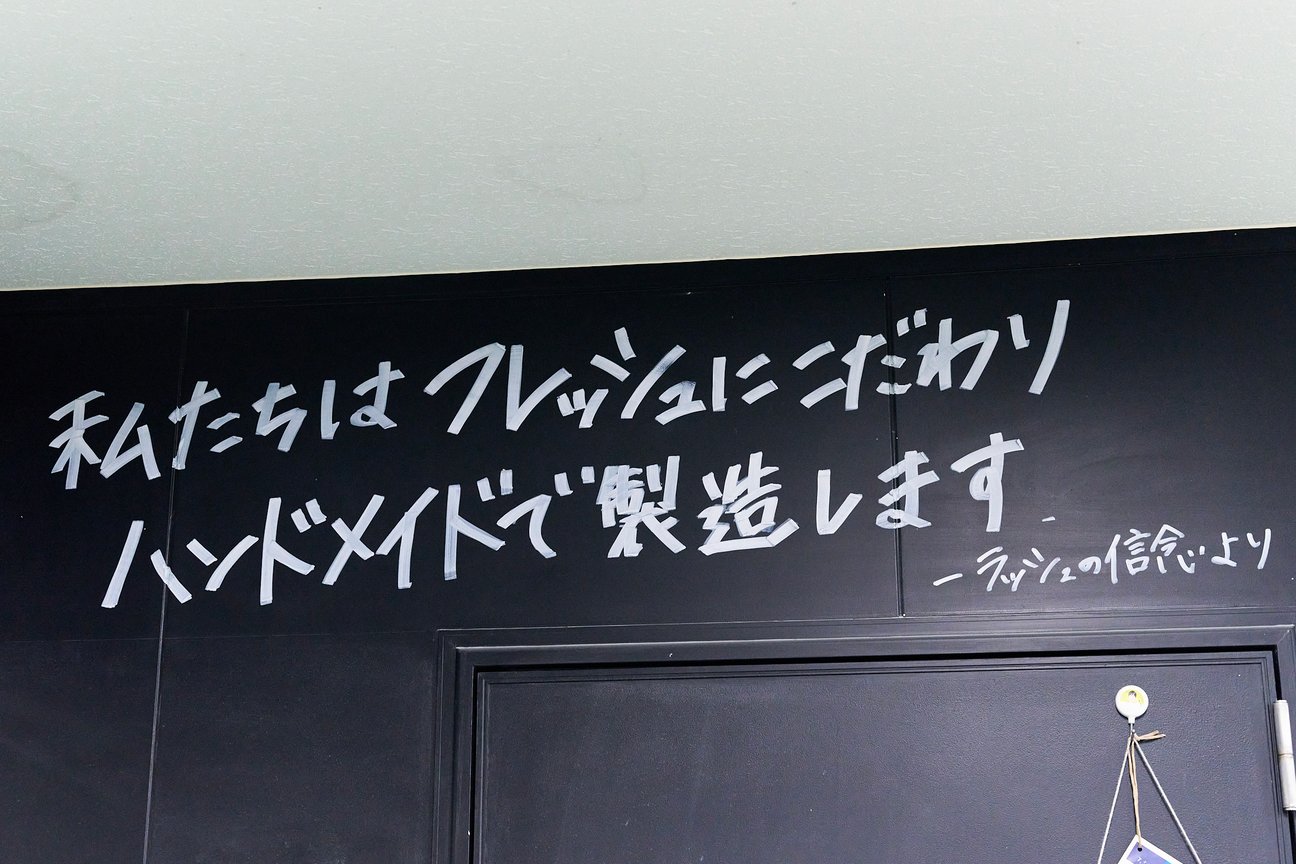 私たちはフレッシュにこだわり
ハンドメイドで製造します
ーラッシュの信念より